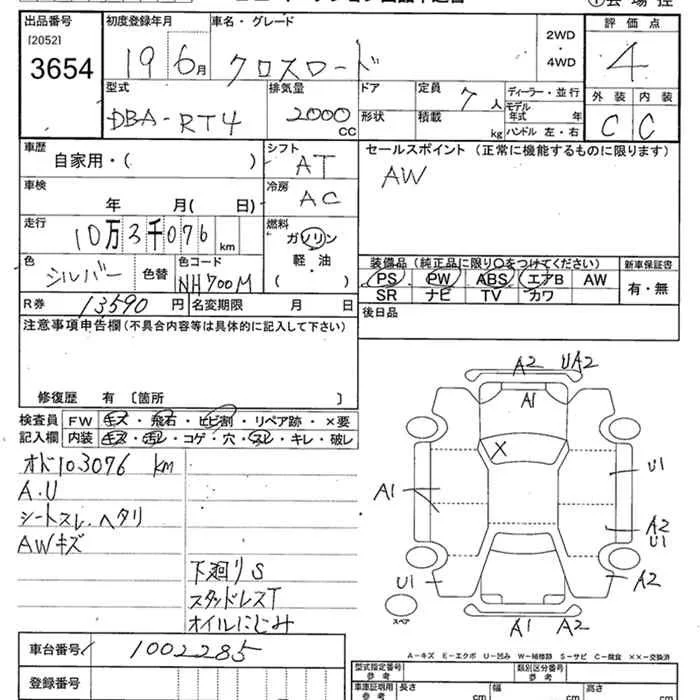 出品番号 初度登録年月 車名・グレード 評価点
[2052]
3654
19 6月 クロスロード
2WD
・
4WD
4
型式 排気量 ドア 定員 7人 ディーラー・並行
モデル年式 年
外装 内装
DBA-RT4 2000 CC 形状 積載 kg ハンドル 左・右 C C
車歴 自家用・( ) シフト AT
セールスポイント (正常に機能するものに限ります)
AW
車検 年 月( 日) 冷房 AC
走行 10万3千076 km 燃料 ガソリン
軽・油
( )
色 シルバー 色替 色コード NH700M
装備品 (純正品に限り○をつけてください) 新車保証書
PS PW ABS エアB AW 有・無
SR ナビ TV カワ
R券 13590 円 名変期限 月 日
後日品
注意事項申告欄(不具合内容等は具体的に記入して下さい)
修復歴 有 〔箇所 〕
検査員 FW キズ・飛石・ヒビ割・リペア跡・×要
記入欄 内装 キズ・汚レ・コゲ・穴・スレ・キレ・破レ
オド103076 km
A.U
シートスレ、ヘタリ
AWキズ
下廻りS
スタッドレスT
オイルにじみ
A2 UA2
A1
X
U1
A1
A2
U1
U1
A2
スペア
A1 A2
車台番号 1002285
登録番号
A−キズ E−エクボ U−凹み W−補修跡 S−サビ C−腐食 ××−交換済
型式指定番号 類別区分番号
参考 参考
車庫証明用 長さ cm 幅 cm 高さ cm
参考